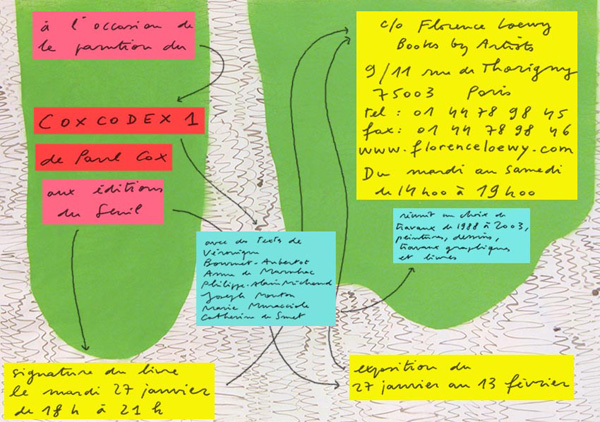 à l'occasion de
la parution du
COXCODEX 1
de Paul Cox
aux éditions
du Seuil
avec des textes de
Véronique
Bouruet-Aubertot
Anne de Marnhac
Philippe-Alain Michaud
Joseph Mouton
Marie Muracciole
Catherine de Smet
signature du livre
le mardi 27 janvier
de 18h à 21h
c/o Florence Loewy
Books by Artists
9/11 rue de Thorigny
75003 Paris
tel : 01 44 78 98 45
fax : 01 44 78 98 46
www.florenceloewy.com
Du mardi au samedi
de 14h00 à 19h00
réunit un choix de
travaux de 1988 à 2003,
peintures, dessins,
travaux graphiques
et livres
exposition du
27 janvier au 13 février